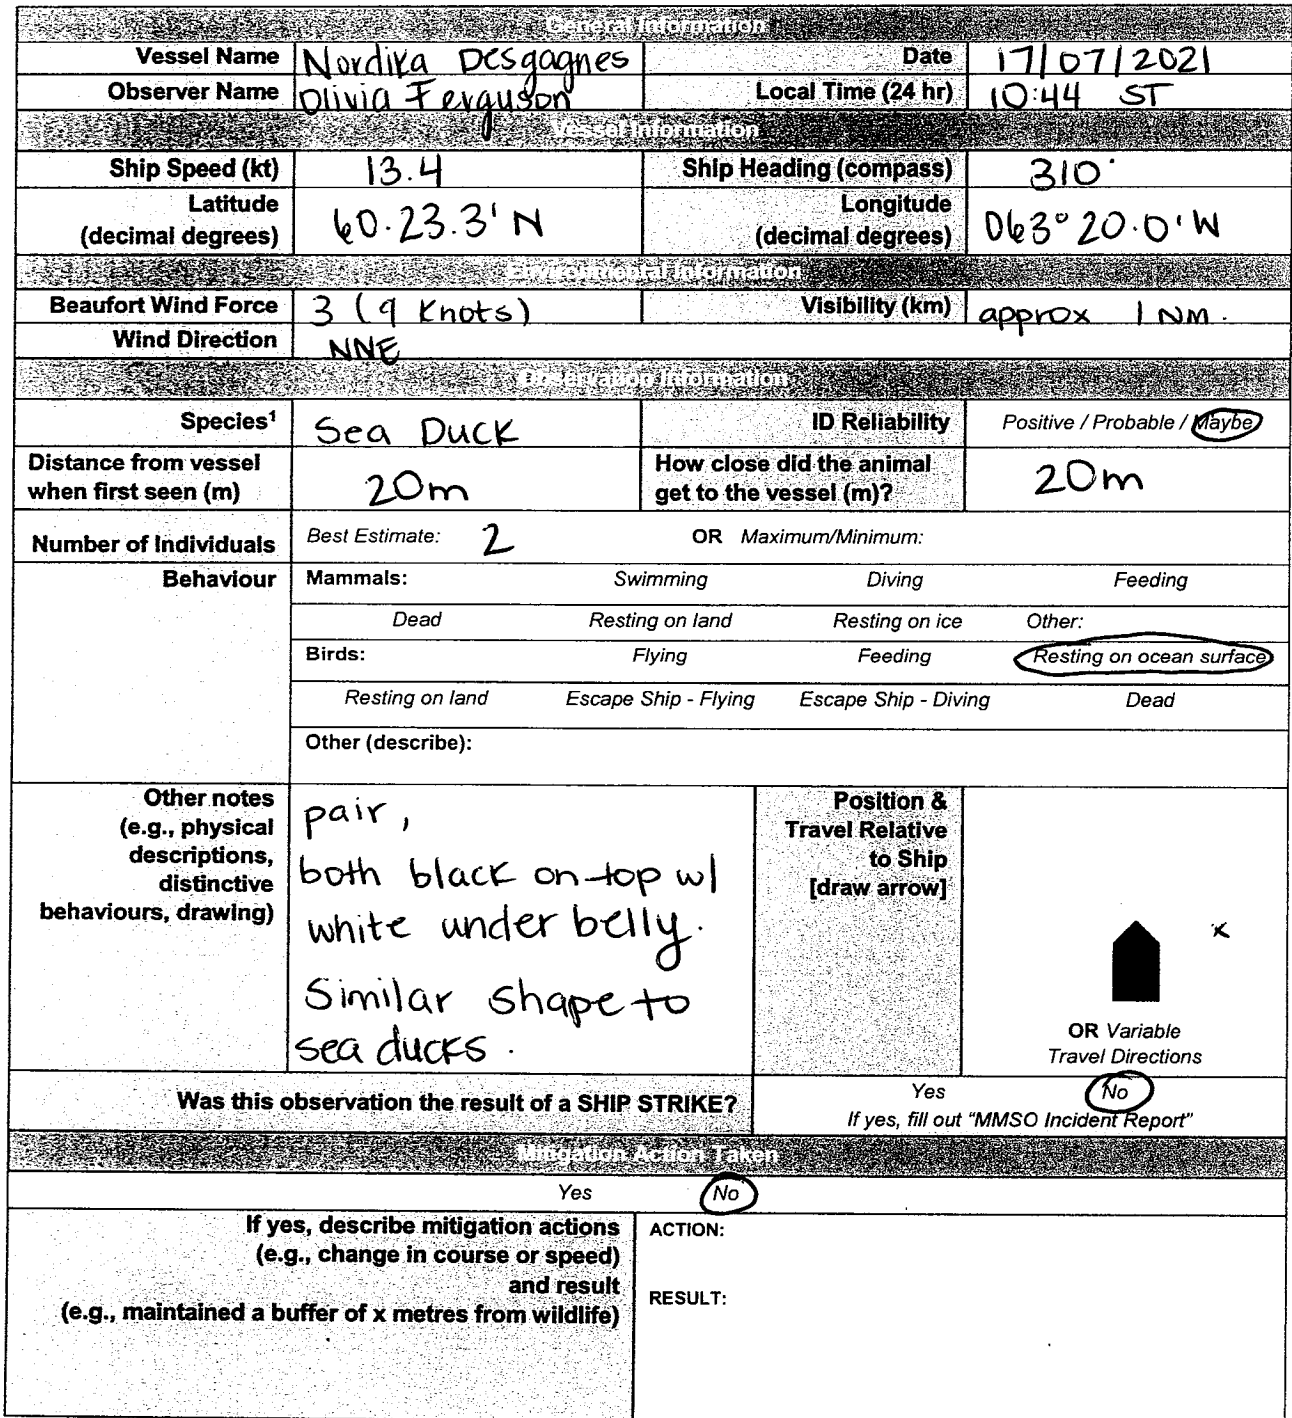 General Information
Vessel Name Nordika Desgagnes Date 17/07/2021
Observer Name Olivia Ferguson Local Time (24 hr) 10:44 ST
Vessel Information
Ship Speed (kt) 13.4 Ship Heading (compass) 310°
Latitude (decimal degrees) 60.23.3' N Longitude (decimal degrees) 063° 20.0' W
Environmental Information
Beaufort Wind Force 3 (9 Knots) Visibility (km) approx 1 NM.
Wind Direction NNE
Observation Information
Species¹ Sea Duck ID Reliability Positive / Probable / Maybe
Distance from vessel when first seen (m) 20m How close did the animal get to the vessel (m)? 20m
Number of Individuals Best Estimate: 2 OR Maximum/Minimum:
Behaviour Mammals: Swimming Diving Feeding
Dead Resting on land Resting on ice Other:
Birds: Flying Feeding Resting on ocean surface
Resting on land Escape Ship - Flying Escape Ship - Diving Dead
Other (describe):
Other notes
(e.g., physical
descriptions,
distinctive
behaviours, drawing)
pair,
both black on top w/
white under belly.
Similar shape to
sea ducks.
Position &
Travel Relative
to Ship
[draw arrow]
x
OR Variable
Travel Directions
Was this observation the result of a SHIP STRIKE? Yes No
If yes, fill out "MMSO Incident Report"
Mitigation Action Taken
Yes No
If yes, describe mitigation actions
(e.g., change in course or speed)
and result
(e.g., maintained a buffer of x metres from wildlife)
ACTION:
RESULT: